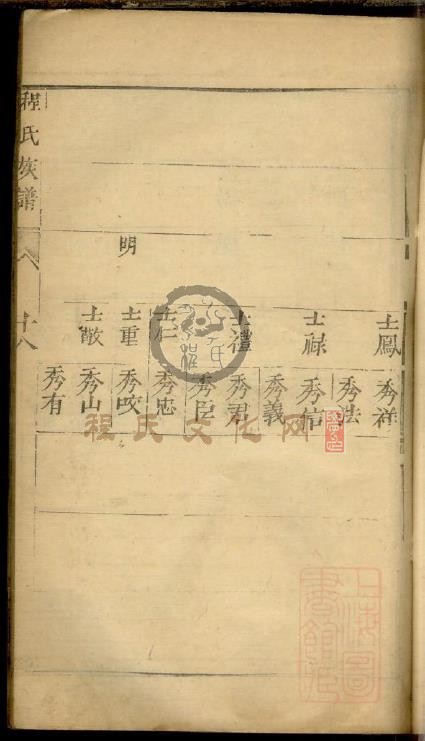 士鳳
士祿
士禮
士仁
士重
士敬
明
秀祥
秀法
秀信
秀義
秀君
秀臣
秀忠
秀山
秀有
程氏族譜
八
十八
程氏文化网
上海圖書館藏